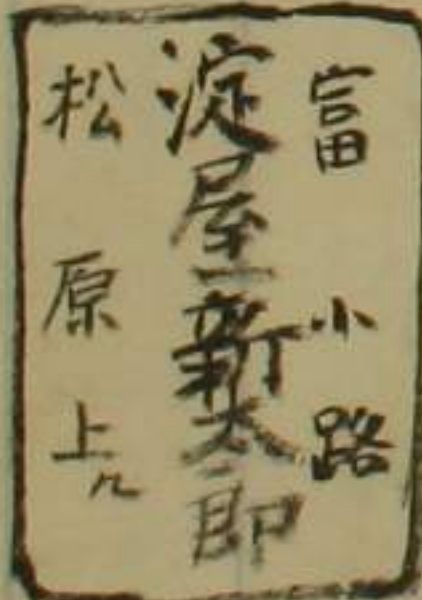 富小路
淀屋新太郎
松原上ル